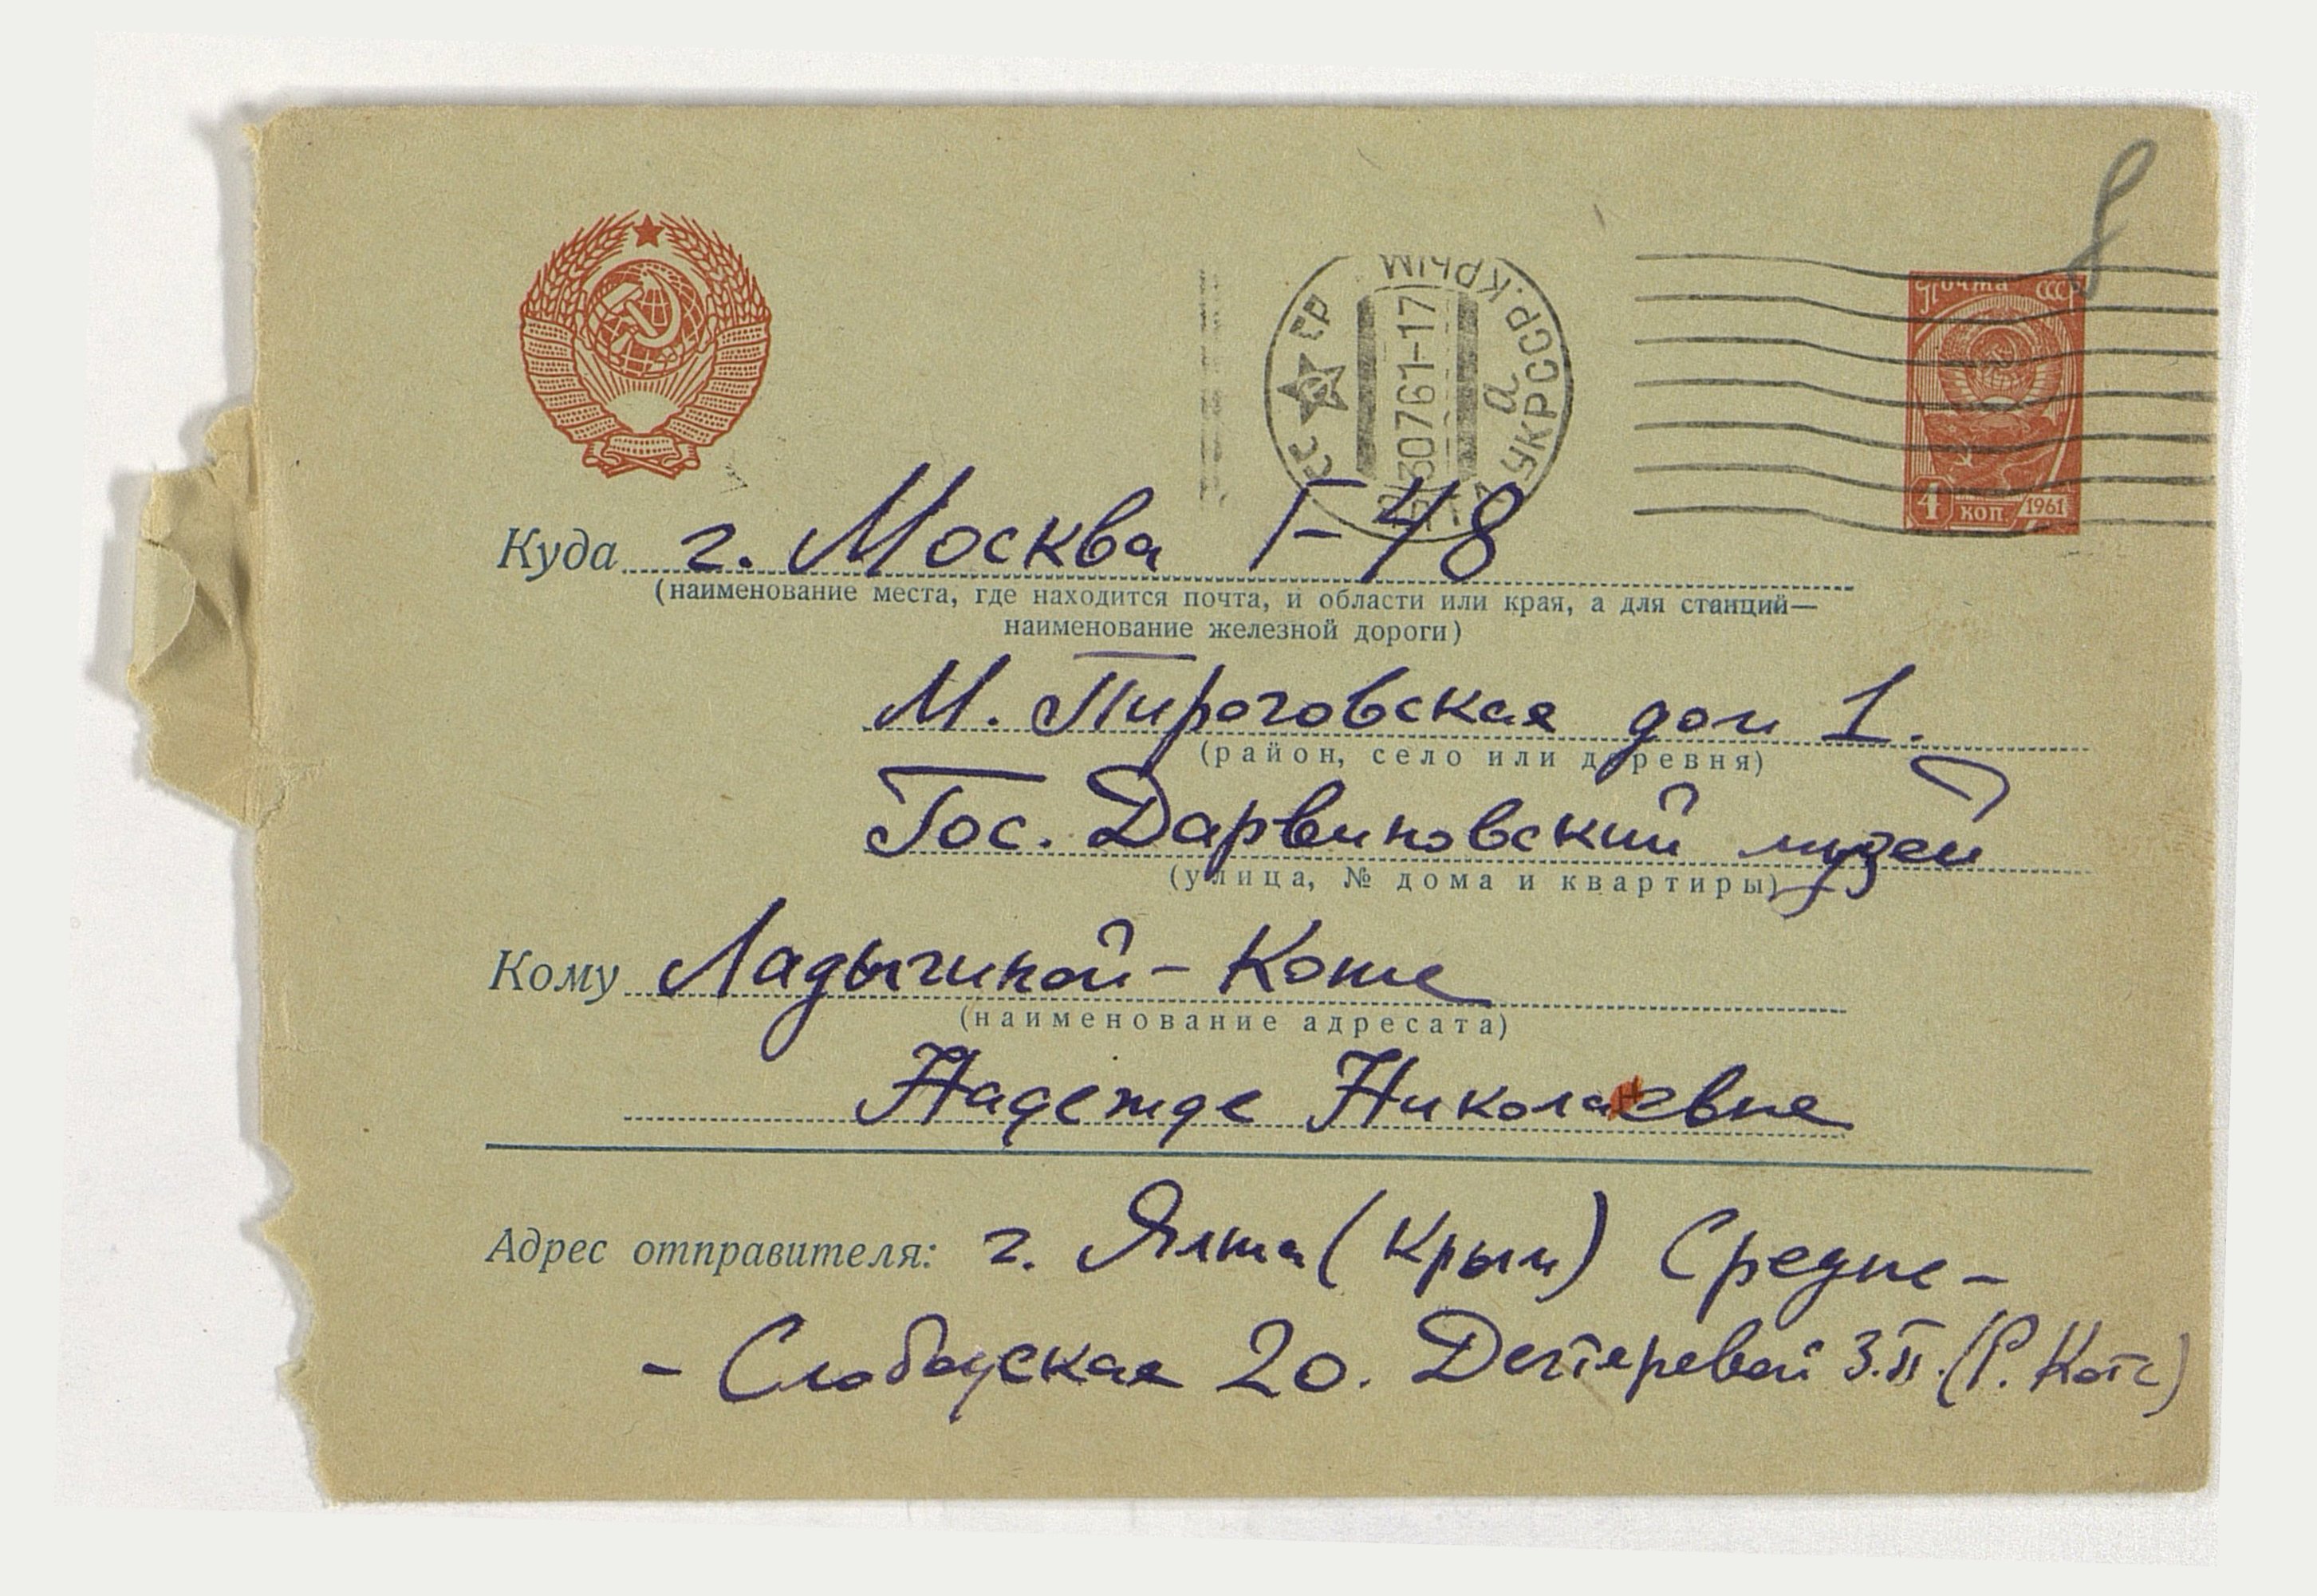 8
Почта СССР
4 коп 1961
СССР
УКРССР. КРЫМ
300761-17
а
Куда г. Москва Г-48
(наименование места, где находится почта, и области или края, а для станций—
наименование железной дороги)
М. Пироговская дом 1.
(район, село или деревня)
Гос. Дарвиновский музей
(улица, № дома и квартиры)
Кому Ладыгиной-Котс
(наименование адресата)
Надежде Николаевне
Адрес отправителя: г. Ялта (Крым) Средне-
- Слободская 20. Дегтеревой З.П. (Р. Котс)